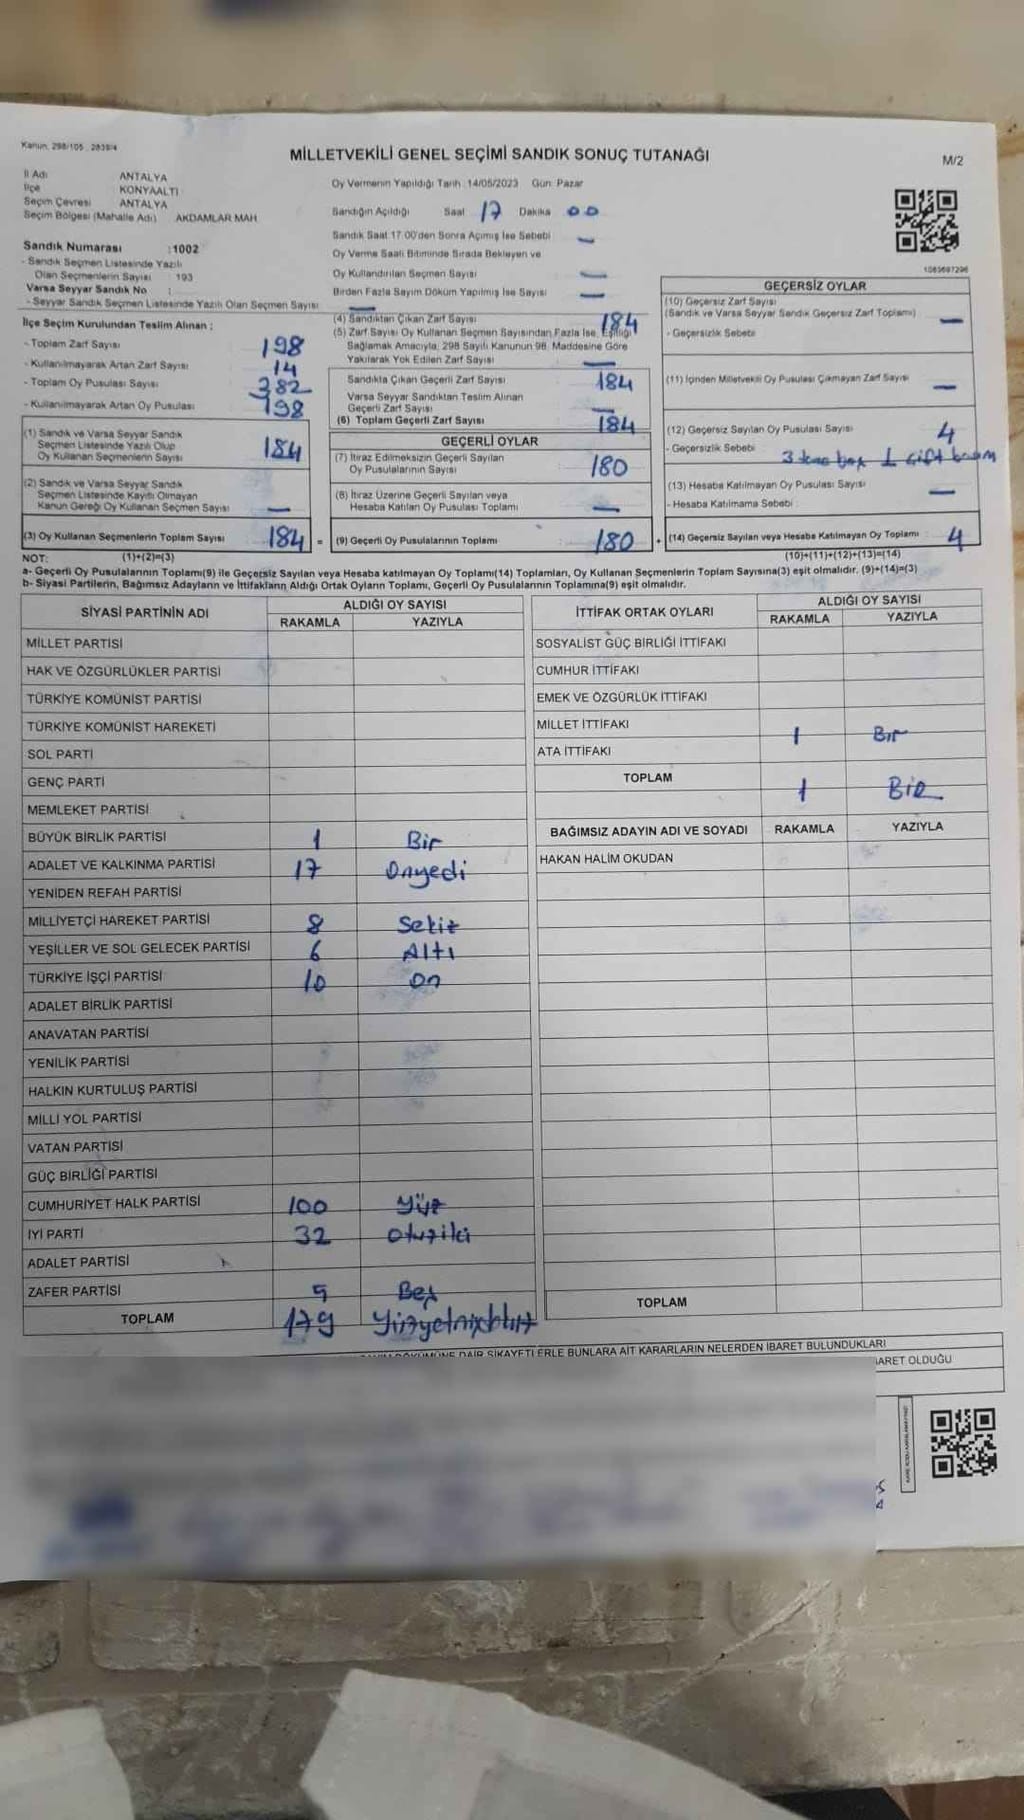 Kanun: 298/105, 2839/4
MİLLETVEKİLİ GENEL SEÇİMİ SANDIK SONUÇ TUTANAĞI
M/2
İl Adı ANTALYA
İlçe KONYAALTI
Seçim Çevresi ANTALYA
Seçim Bölgesi (Mahalle Adı) AKDAMLAR MAH.
Sandık Numarası :1002
- Sandık Seçmen Listesinde Yazılı
Olan Seçmenlerin Sayısı : 193
Varsa Seyyar Sandık No :
- Seyyar Sandık Seçmen Listesinde Yazılı Olan Seçmen Sayısı —
Oy Vermenin Yapıldığı Tarih :14/05/2023 Gün: Pazar
Sandığın Açıldığı Saat 17 Dakika 00
Sandık Saat 17.00'den Sonra Açılmış İse Sebebi —
Oy Verme Saati Bitiminde Sırada Bekleyen ve
Oy Kullandırılan Seçmen Sayısı —
Birden Fazla Sayım Döküm Yapılmış İse Sayısı —
1085697296
İlçe Seçim Kurulundan Teslim Alınan :
- Toplam Zarf Sayısı 198
- Kullanılmayarak Artan Zarf Sayısı 14
- Toplam Oy Pusulası Sayısı 382
- Kullanılmayarak Artan Oy Pusulası 198
(1) Sandık ve Varsa Seyyar Sandık
Seçmen Listesinde Yazılı Olup
Oy Kullanan Seçmenlerin Sayısı 184
(2) Sandık ve Varsa Seyyar Sandık
Seçmen Listesinde Kayıtlı Olmayan
Kanun Gereği Oy Kullanan Seçmen Sayısı —
(3) Oy Kullanan Seçmenlerin Toplam Sayısı 184 =
(1)+(2)=(3)
(4) Sandıktan Çıkan Zarf Sayısı 184
(5) Zarf Sayısı Oy Kullanan Seçmen Sayısından Fazla İse, Eşitliği
Sağlamak Amacıyla, 298 Sayılı Kanunun 98. Maddesine Göre
Yakılarak Yok Edilen Zarf Sayısı —
Sandıkta Çıkan Geçerli Zarf Sayısı 184
Varsa Seyyar Sandıktan Teslim Alınan
Geçerli Zarf Sayısı —
(6) Toplam Geçerli Zarf Sayısı 184
GEÇERLİ OYLAR
(7) İtiraz Edilmeksizin Geçerli Sayılan
Oy Pusulalarının Sayısı 180
(8) İtiraz Üzerine Geçerli Sayılan veya
Hesaba Katılan Oy Pusulası Toplamı —
(9) Geçerli Oy Pusulalarının Toplamı 180 +
GEÇERSİZ OYLAR
(10) Geçersiz Zarf Sayısı
(Sandık ve Varsa Seyyar Sandık Geçersiz Zarf Toplamı) —
- Geçersizlik Sebebi
(11) İçinden Milletvekili Oy Pusulası Çıkmayan Zarf Sayısı —
(12) Geçersiz Sayılan Oy Pusulası Sayısı 4
- Geçersizlik Sebebi 3 boş 1 çift basım
(13) Hesaba Katılmayan Oy Pusulası Sayısı —
- Hesaba Katılmama Sebebi
(14) Geçersiz Sayılan veya Hesaba Katılmayan Oy Toplamı : 4
(10)+(11)+(12)+(13)=(14)
NOT:
a- Geçerli Oy Pusulalarının Toplamı(9) ile Geçersiz Sayılan veya Hesaba katılmayan Oy Toplamı(14) Toplamları, Oy Kullanan Seçmenlerin Toplam Sayısına(3) eşit olmalıdır. (9)+(14)=(3)
b- Siyasi Partilerin, Bağımsız Adayların ve İttifakların Aldığı Ortak Oyların Toplamı, Geçerli Oy Pusulalarının Toplamına(9) eşit olmalıdır.
SİYASİ PARTİNİN ADI ALDIĞI OY SAYISI
RAKAMLA YAZIYLA
MİLLET PARTİSİ
HAK VE ÖZGÜRLÜKLER PARTİSİ
TÜRKİYE KOMÜNİST PARTİSİ
TÜRKİYE KOMÜNİST HAREKETİ
SOL PARTİ
GENÇ PARTİ
MEMLEKET PARTİSİ
BÜYÜK BİRLİK PARTİSİ 1 Bir
ADALET VE KALKINMA PARTİSİ 17 Onyedi
YENİDEN REFAH PARTİSİ
MİLLİYETÇİ HAREKET PARTİSİ 8 Sekiz
YEŞİLLER VE SOL GELECEK PARTİSİ 6 Altı
TÜRKİYE İŞÇİ PARTİSİ 10 On
ADALET BİRLİK PARTİSİ
ANAVATAN PARTİSİ
YENİLİK PARTİSİ
HALKIN KURTULUŞ PARTİSİ
MİLLİ YOL PARTİSİ
VATAN PARTİSİ
GÜÇ BİRLİĞİ PARTİSİ
CUMHURİYET HALK PARTİSİ 100 Yüz
İYİ PARTİ 32 Otuziki
ADALET PARTİSİ
ZAFER PARTİSİ 5 Beş
TOPLAM 179
İTTİFAK ORTAK OYLARI ALDIĞI OY SAYISI
RAKAMLA YAZIYLA
SOSYALİST GÜÇ BİRLİĞİ İTTİFAKI
CUMHUR İTTİFAKI
EMEK VE ÖZGÜRLÜK İTTİFAKI
MİLLET İTTİFAKI 1 Bir
ATA İTTİFAKI
TOPLAM 1 Bir
BAĞIMSIZ ADAYIN ADI VE SOYADI RAKAMLA YAZIYLA
HAKAN HALİM OKUDAN
TOPLAM
DÖKÜMÜNE DAİR ŞİKAYETLERLE BUNLARA AİT KARARLARIN NELERDEN İBARET BULUNDUKLARI
OLDUĞU